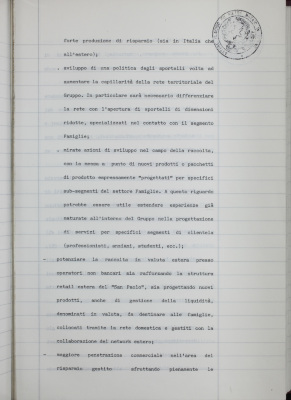 forte produzione di risparmio (sia in Italia che
all'estero);
. sviluppo di una politica degli sportelli volta ad
aumentare la capillarità della rete territoriale del
Gruppo. In particolare sarà necessario differenziare
la rete con l'apertura di sportelli di dimensioni
ridotte, specializzati nel contatto con il segmento
Famiglie;
. mirate azioni di sviluppo nel campo della raccolta,
con la messa a punto di nuovi prodotti o pacchetti
di prodotto espressamente "progettati" per specifici
sub-segmenti del settore Famiglie. A questo riguardo
potrebbe essere utile estendere esperienze già
maturate all'interno del Gruppo nella progettazione
di servizi per specifici segmenti di clientela
(professionisti, anziani, studenti, ecc.);
- potenziare la raccolta in valuta estera presso
operatori non bancari sia rafforzando le strutture
retail estere del "San Paolo", sia progettando nuovi
prodotti, anche di gestione della liquidità,
denominati in valuta, da destinare alle famiglie,
collocati tramite la rete domestica e gestiti con la
collaborazione del network estero;
- maggiore penetrazione commerciale nell'area del
risparmio gestito sfruttando pienamente le